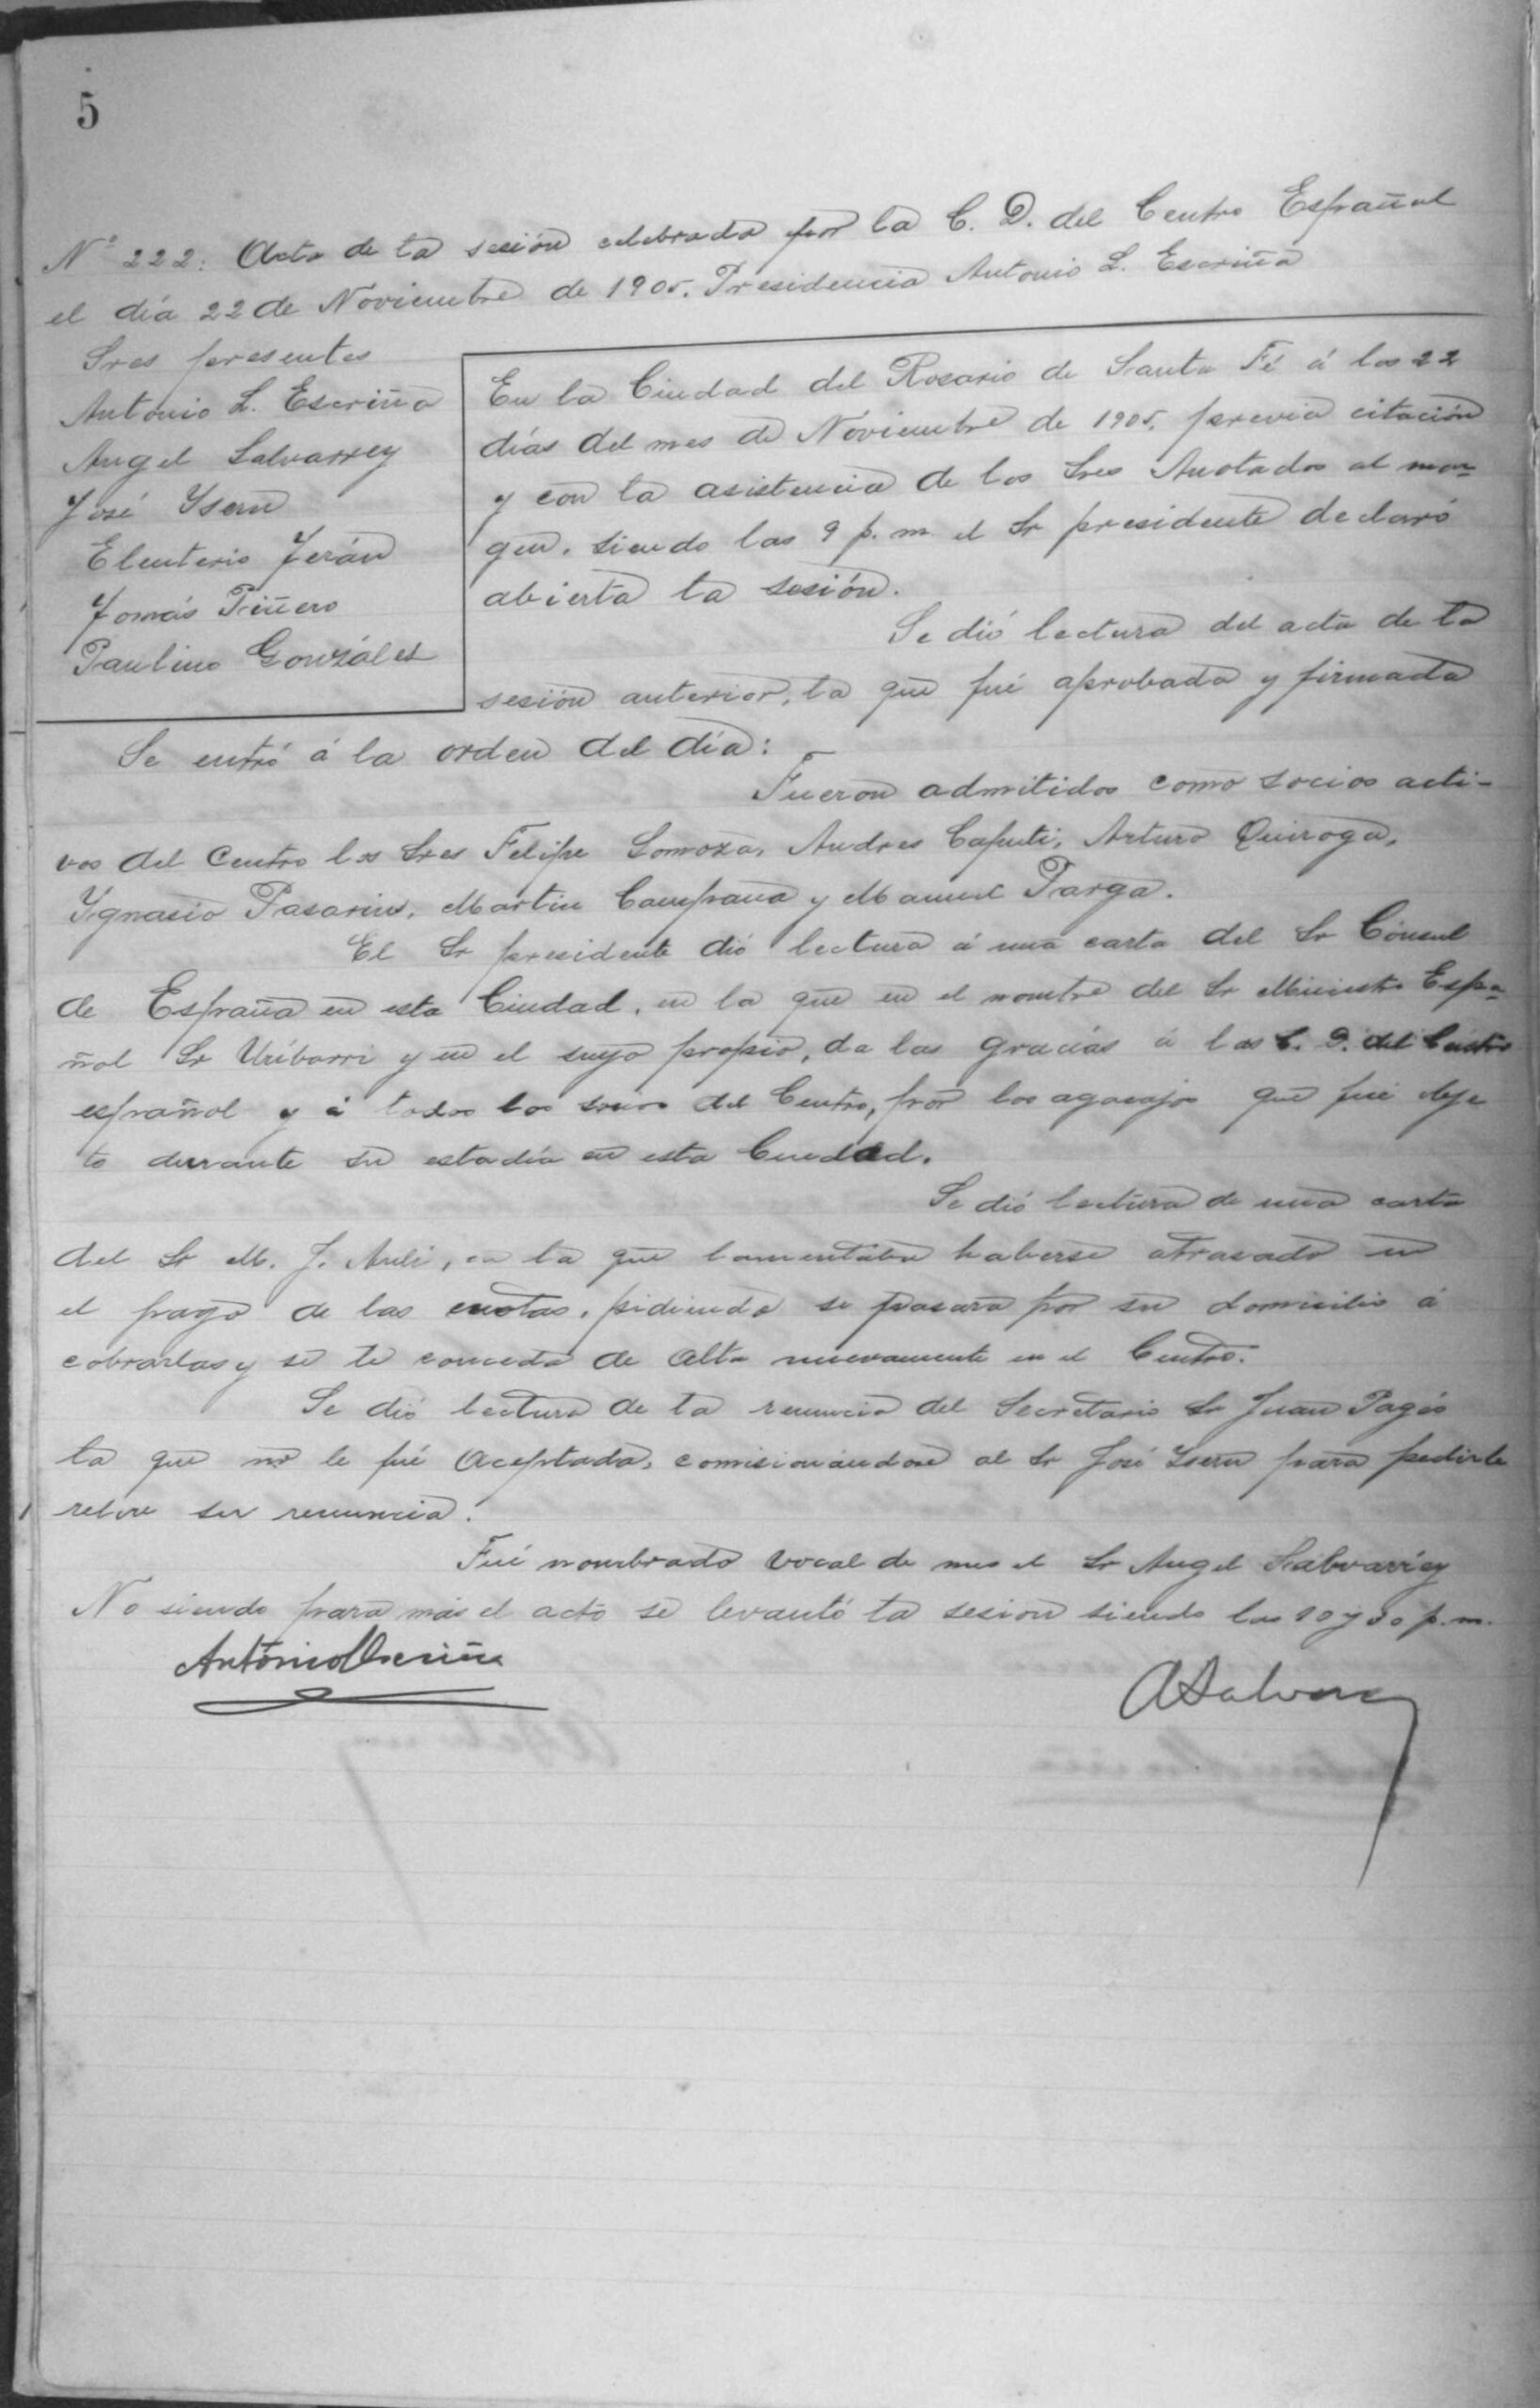 5
Nº 222: Acta de la sesión celebrada por la C. D. del Centro Español
el día 22 de Noviembre de 1905. Presidencia Antonio L. Escriña
Sres presentes
Antonio L. Escriña
Angel Salvarrey
José Ysern
Eleuterio Terán
Tomás Piñero
Paulino Gonzáles
En la Ciudad del Rosario de Santa Fé á los 22
días del mes de Noviembre de 1905, previa citación
y con la asistencia de los Sres Anotados al mar-
gen, siendo las 9 p. m. el Sr presidente declaró
abierta la sesión.
Se dió lectura del acta de la
sesión anterior, la que fué aprobada y firmada
Se entró á la orden del día:
Fueron admitidos como socios acti-
vos del Centro los Sres Felipe Somoza, Andres Caputi, Arturo Quiroga,
Ygnasio Pasarin, Martin Campana y Manuel Parga.
El Sr presidente dió lectura á una carta del Sr Cónsul
de España en esta Ciudad, en la que en el nombre del Sr Ministro Espa-
ñol Sr Uríbarri y en el suyo propio, da las gracias á las C. D. del Centro
español y á todos los socios del Centro, por los agasajos que fué obje
to durante su estadía en esta Ciudad.
Se dió lectura de una carta
del Sr M. J. Auli, en la que lamentaba haberse atrasado en
el pago de las cuotas, pidiendo se pasara por su domicilio á
cobrarlas y se le conceda de alta nuevamente en el Centro.
Se dió lectura de la renuncia del Secretario Sr Juan Pagés
la que no le fué aceptada, comisionándose al Sr José Ysern para pedirle
retire su renuncia.
Fué nombrado vocal de mes el Sr Angel Salvarrey
No siendo para más el acto se levantó la sesion siendo las 10 y 30 p. m.
Antonio Escriña
A Salvarrey